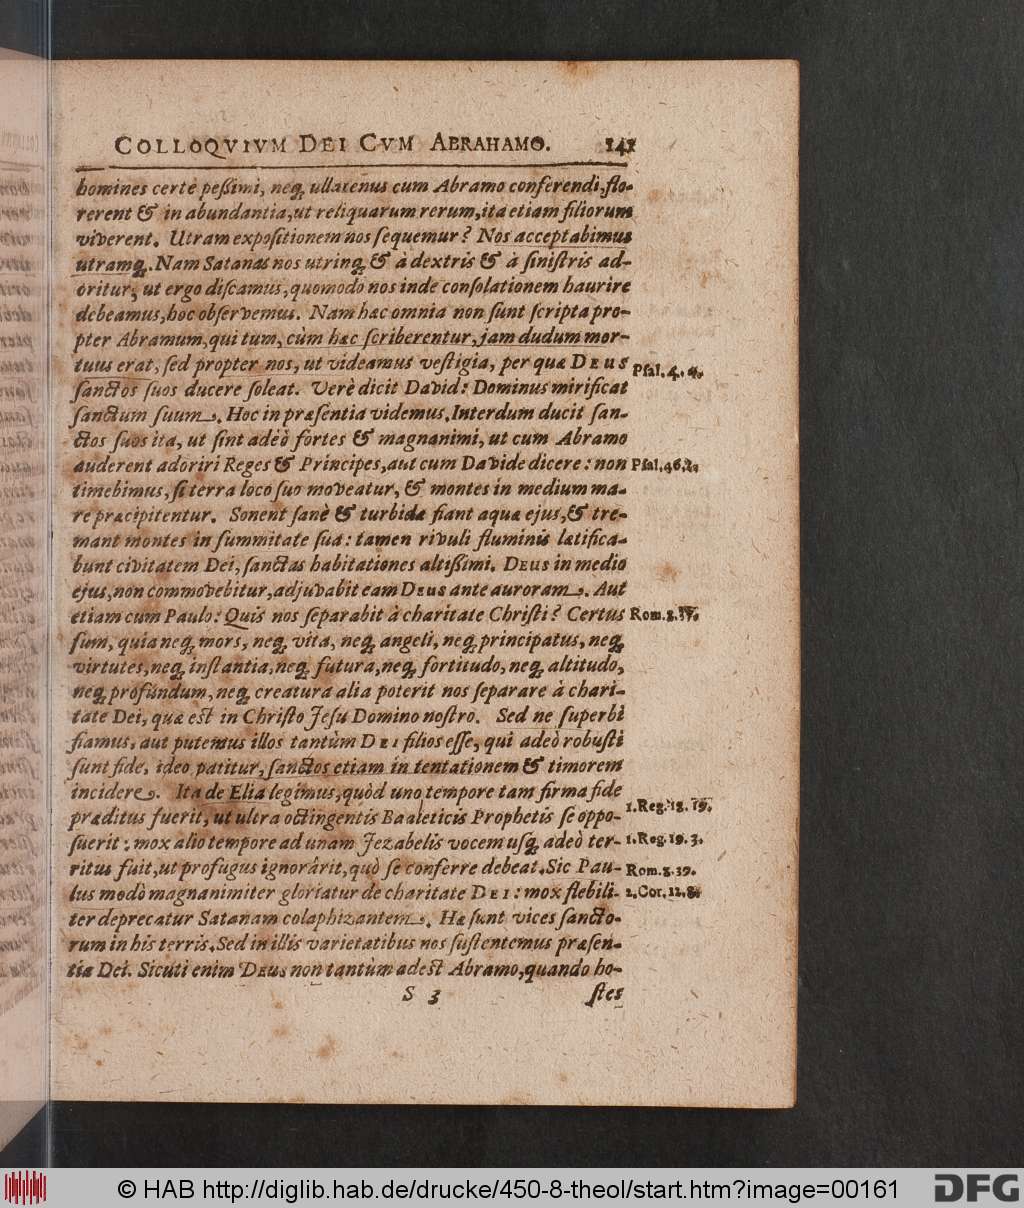 COLLOQVIVM DEI CVM ABRAHAMO. 141
homines certè peßimi, neq; ullatenus cum Abramo conferendi, flo-
rerent & in abundantia, ut reliquarum rerum, ita etiam filiorum
viverent. Utram expositionem nos sequemur? Nos acceptabimus
utramq;. Nam Satanas nos utrinq; & à dextris & à sinistris ad-
oritur; ut ergo discamus, quomodò nos inde consolationem haurire
debeamus, hoc observemus. Nam hæc omnia non sunt scripta pro-
pter Abramum, qui tum, cùm hæc scriberentur, jam dudum mor-
tuus erat, sed propter nos, ut videamus vestigia, per quæ DEUS
sanctos suos ducere soleat. Verè dicit David: Dominus mirificat
Psal. 4. 4.
sanctum suum. Hoc in præsentia videmus. Interdum ducit san-
ctos suos ita, ut sint adeò fortes & magnanimi, ut cum Abramo
auderent adoriri Reges & Principes, aut cum Davide dicere: non
Psal. 46. 2.
timebimus, si terra loco suo moveatur, & montes in medium ma-
re præcipitentur. Sonent sanè & turbidæ fiant aquæ ejus, & tre-
mant montes in summitate sua: tamen rivuli fluminis lætifica-
bunt civitatem Dei, sanctas habitationes altißimi. DEUS in medio
ejus, non commovebitur, adjuvabit eam DEUS ante auroram. Aut
etiam cum Paulo: Quis nos separabit à charitate Christi? Certus
Rom. 8.
sum, quia neq; mors, neq; vita, neq; angeli, neq; principatus, neq;
virtutes, neq; instantia, neq; futura, neq; fortitudo, neq; altitudo,
neq; profundum, neq; creatura alia poterit nos separare à chari-
tate Dei, quæ est in Christo Jesu Domino nostro. Sed ne superbi
fiamus, aut putemus illos tantùm DEI filios esse, qui adeò robusti
sunt fide, ideo patitur, sanctos etiam in tentationem & timorem
incidere. Ita de Elia legimus, quòd uno tempore tam firma fide
præditus fuerit, ut ultra octingentis Baaleticis Prophetis se oppo-
1. Reg. 18. 19.
suerit: mox alio tempore ad unam Jezabelis vocem usq; adeò ter-
1. Reg. 19. 3.
ritus fuit, ut profugus ignorârit, quò se conferre debeat. Sic Pau-
Rom. 8. 39.
lus modò magnanimiter gloriatur de charitate DEI: mox flebili-
2. Cor. 12. 8.
ter deprecatur Satanam colaphizantem. Hæ sunt vices sancto-
rum in his terris. Sed in illis varietatibus nos sustentemus præsen-
tia Dei. Sicuti enim DEUS non tantùm adest Abramo, quando ho-
S 3 stes
© HAB http://diglib.hab.de/drucke/450-8-theol/start.htm?image=00161 DFG